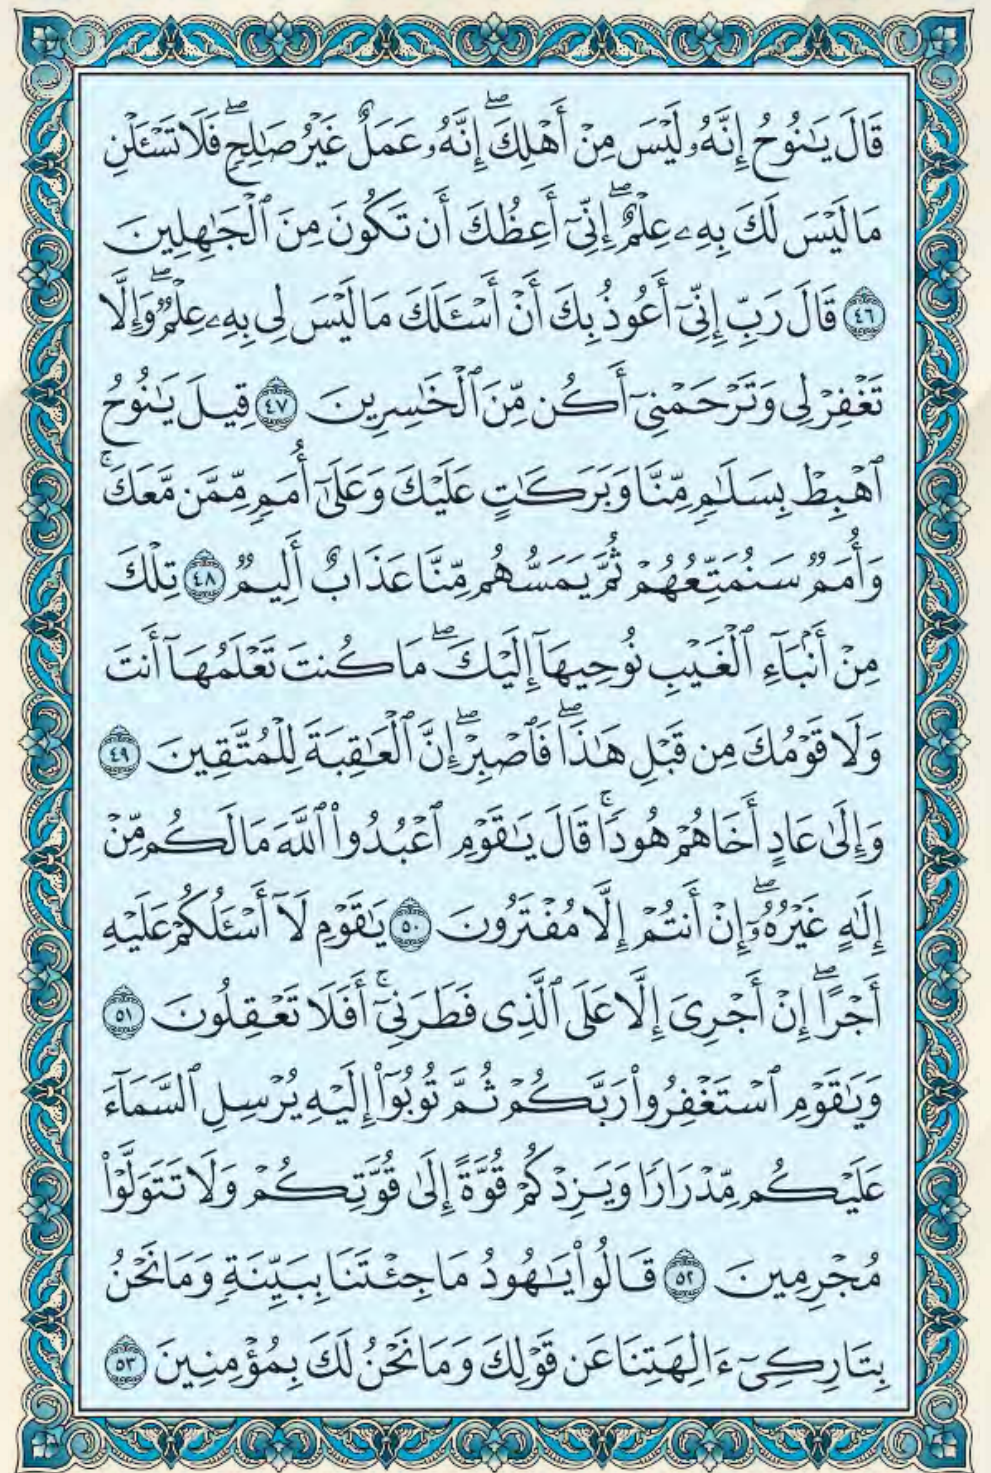 قَالَ يَـٰنُوحُ إِنَّهُۥ لَيْسَ مِنْ أَهْلِكَ ۖ إِنَّهُۥ عَمَلٌ غَيْرُ صَـٰلِحٍ ۖ فَلَا تَسْـَٔلْنِ
مَا لَيْسَ لَكَ بِهِۦ عِلْمٌ ۖ إِنِّىٓ أَعِظُكَ أَن تَكُونَ مِنَ ٱلْجَـٰهِلِينَ
٤٦ قَالَ رَبِّ إِنِّىٓ أَعُوذُ بِكَ أَنْ أَسْـَٔلَكَ مَا لَيْسَ لِى بِهِۦ عِلْمٌ ۖ وَإِلَّا
تَغْفِرْ لِى وَتَرْحَمْنِىٓ أَكُن مِّنَ ٱلْخَـٰسِرِينَ ٤٧ قِيلَ يَـٰنُوحُ
ٱهْبِطْ بِسَلَـٰمٍ مِّنَّا وَبَرَكَـٰتٍ عَلَيْكَ وَعَلَىٰٓ أُمَمٍ مِّمَّن مَّعَكَ ۚ
وَأُمَمٌ سَنُمَتِّعُهُمْ ثُمَّ يَمَسُّهُم مِّنَّا عَذَابٌ أَلِيمٌ ٤٨ تِلْكَ
مِنْ أَنۢبَآءِ ٱلْغَيْبِ نُوحِيهَآ إِلَيْكَ ۖ مَا كُنتَ تَعْلَمُهَآ أَنتَ
وَلَا قَوْمُكَ مِن قَبْلِ هَـٰذَا ۖ فَٱصْبِرْ ۖ إِنَّ ٱلْعَـٰقِبَةَ لِلْمُتَّقِينَ ٤٩
وَإِلَىٰ عَادٍ أَخَاهُمْ هُودًا ۚ قَالَ يَـٰقَوْمِ ٱعْبُدُوا۟ ٱللَّهَ مَا لَكُم مِّنْ
إِلَـٰهٍ غَيْرُهُۥٓ ۖ إِنْ أَنتُمْ إِلَّا مُفْتَرُونَ ٥٠ يَـٰقَوْمِ لَآ أَسْـَٔلُكُمْ عَلَيْهِ
أَجْرًا ۖ إِنْ أَجْرِىَ إِلَّا عَلَى ٱلَّذِى فَطَرَنِىٓ ۚ أَفَلَا تَعْقِلُونَ ٥١
وَيَـٰقَوْمِ ٱسْتَغْفِرُوا۟ رَبَّكُمْ ثُمَّ تُوبُوٓا۟ إِلَيْهِ يُرْسِلِ ٱلسَّمَآءَ
عَلَيْكُم مِّدْرَارًا وَيَزِدْكُمْ قُوَّةً إِلَىٰ قُوَّتِكُمْ وَلَا تَتَوَلَّوْا۟
مُجْرِمِينَ ٥٢ قَالُوا۟ يَـٰهُودُ مَا جِئْتَنَا بِبَيِّنَةٍ وَمَا نَحْنُ
بِتَارِكِىٓ ءَالِهَتِنَا عَن قَوْلِكَ وَمَا نَحْنُ لَكَ بِمُؤْمِنِينَ ٥٣